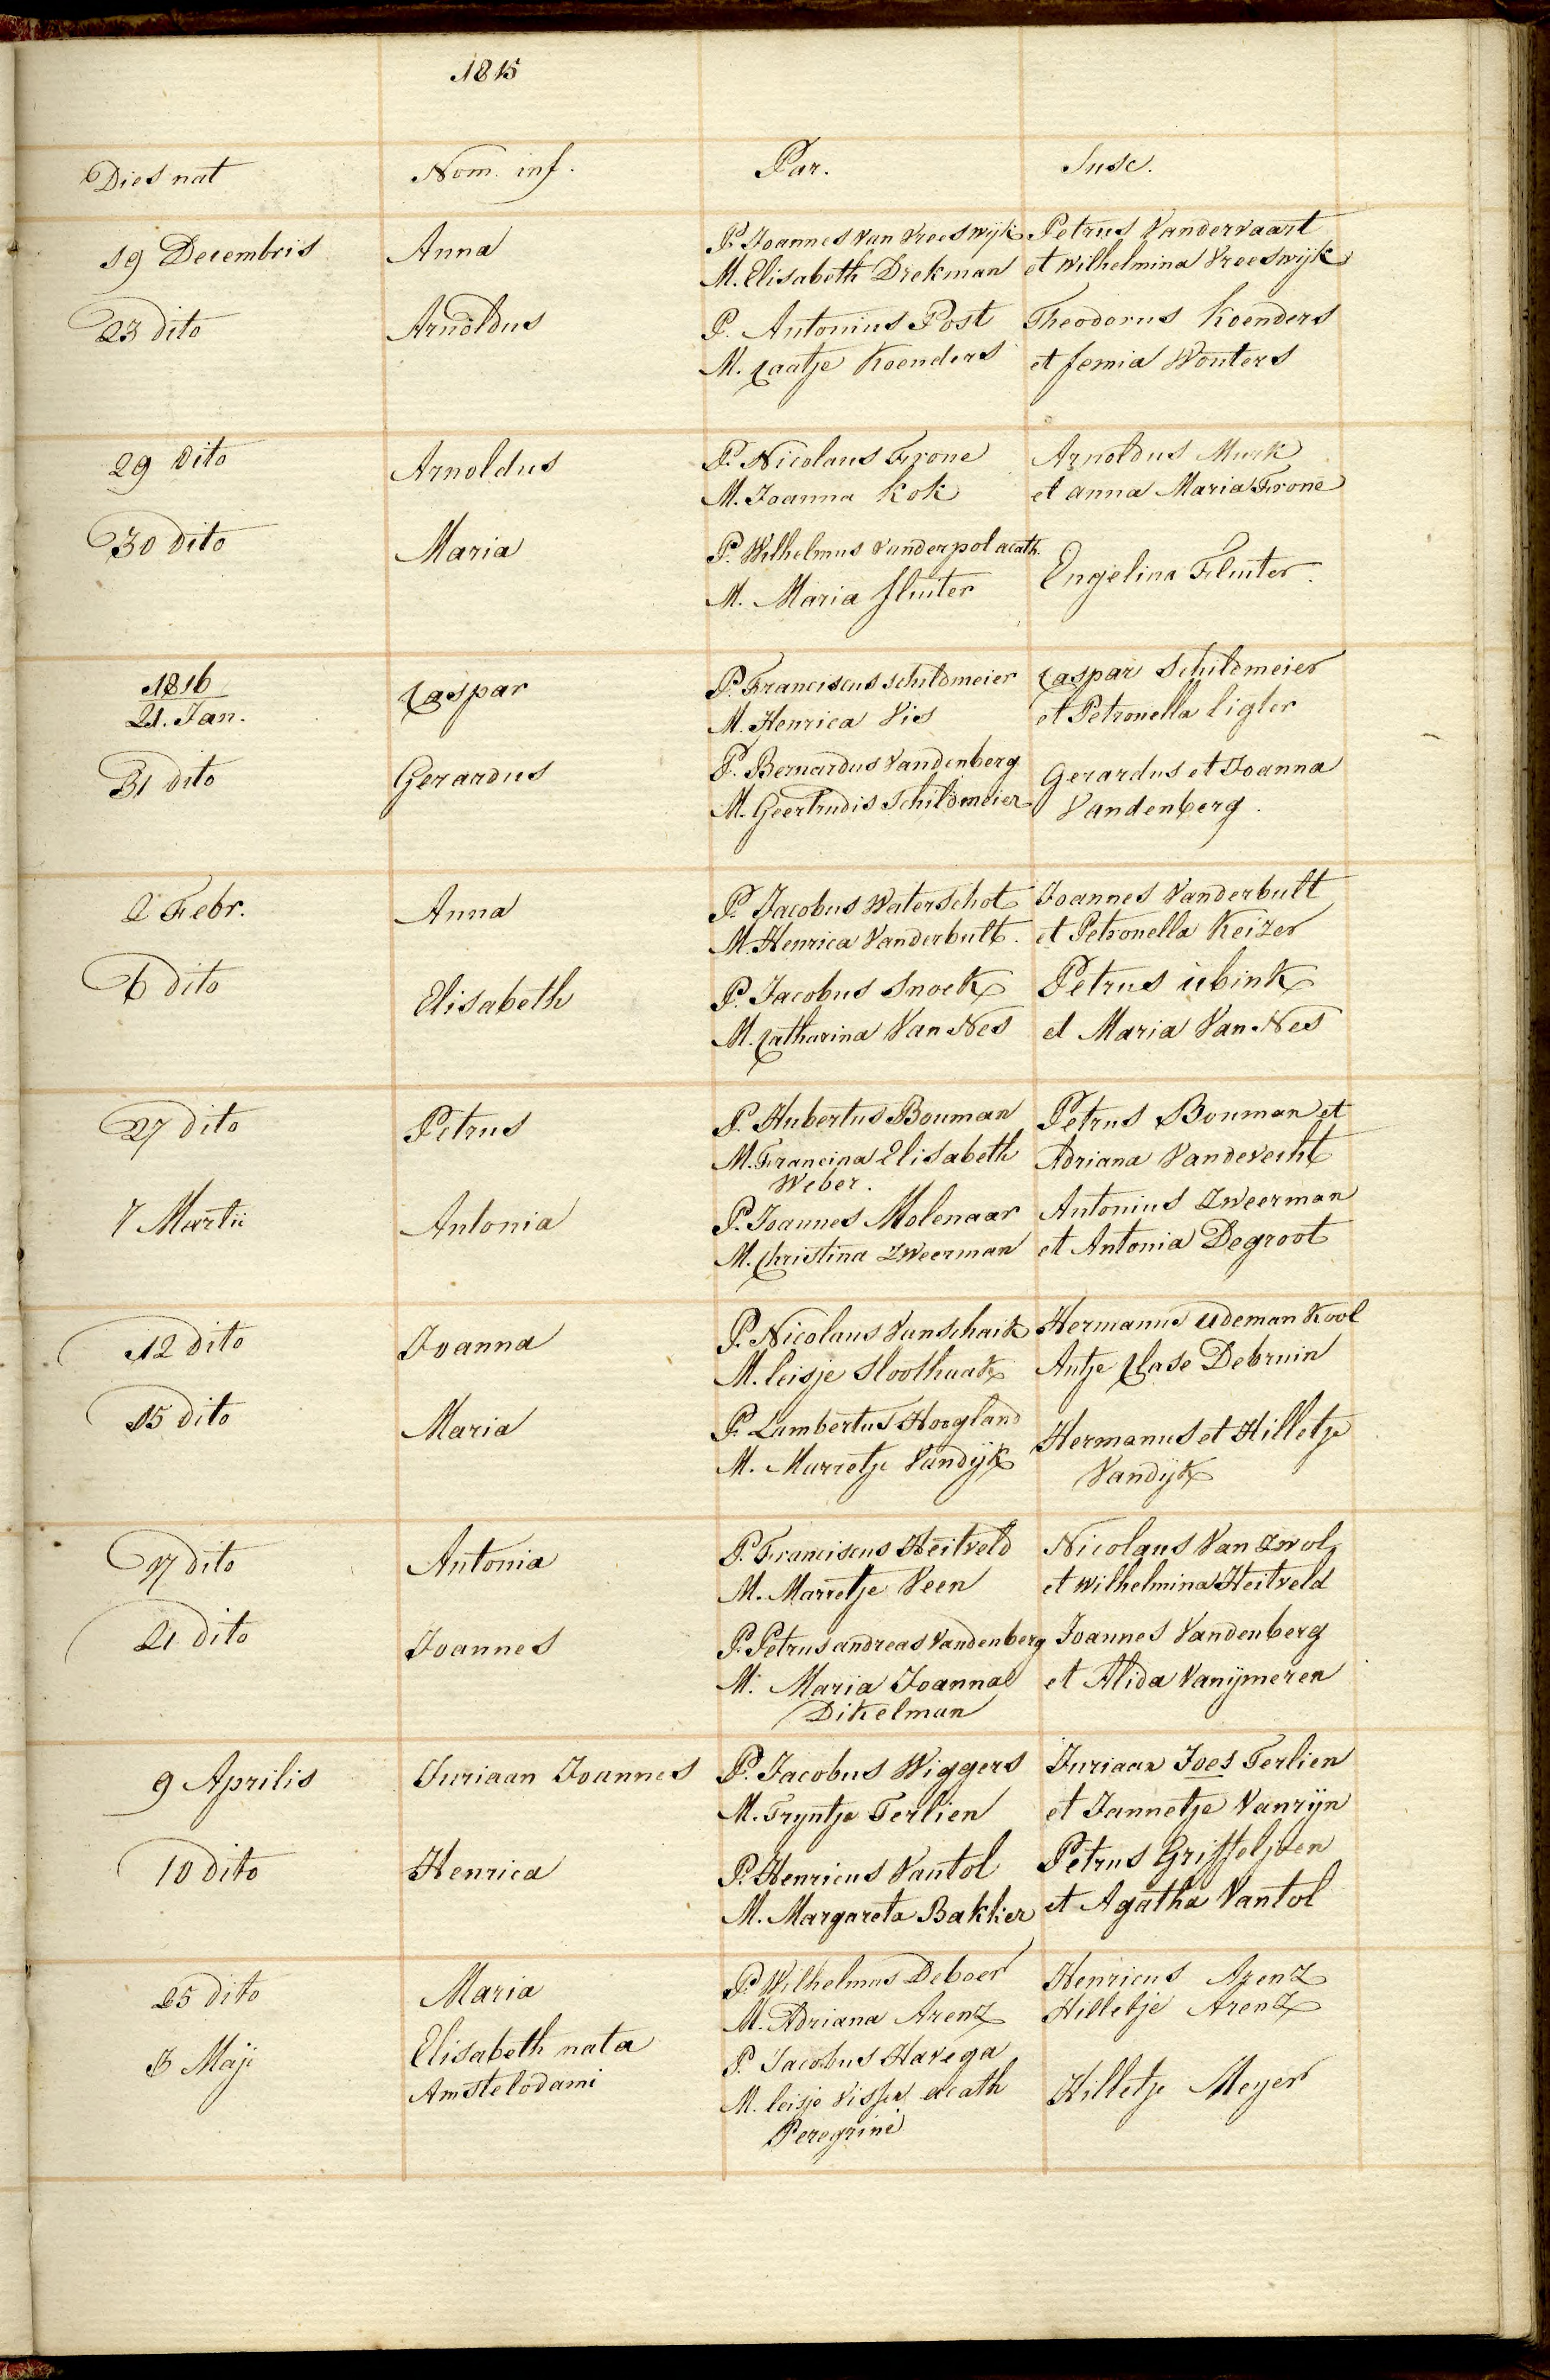 1815
Dies nat Nom. inf. Par. Susc.
19 Decembris Anna P. Joannes Van Vreeswijk Petrus Vandervaart
M. Elisabeth Diekman et Wilhelmina Vreeswijk
23 dito Arnoldus P. Antonius Post Theodorus Koenders
M. Caatje Koenders et femia Wouters
29 dito Arnoldus P. Nicolaus Frone Arnoldus Murk
M. Joanna Kok et anna Maria Frone
30 dito Maria P. Wilhelmus Vanderpol acath. Engelina Fluiter.
M. Maria fluiter
1816
21. Jan. Caspar P. Franciscus Schildmeier Caspar Schildmeier
M. Henrica Vis et Petronella ligter
31 dito Gerardus P. Bernardus Vandenberg Gerardus et Joanna
M. Geertrudis Schildmeier Vandenberg.
2 Febr. Anna P. Jacobus Waterschot Joannes Vanderbult
M. Henrica Vanderbult. et Petronella Keizer
6 dito Elisabeth P. Jacobus Snoek Petrus ubink
M. Catharina Van Nes et Maria Van Nes
27 dito Petrus P. Hubertus Bouman Petrus Bouman et
M. Francina Elisabeth Adriana Vandevecht
Weber.
7 Martii Antonia P. Joannes Molenaar Antonius Zweerman
M. Christina Zweerman et Antonia Degroot
12 dito Joanna P. Nicolaus Vanschaik Hermanus udeman Kool
M. leisje Sloothaak Antje Clase Debruin
15 dito Maria P. Lambertus Hoogland Hermanus et Hilletje
M. Marretje Vandÿk Vandÿk
17 dito Antonia P. Franciscus Heitveld Nicolaus Van Zwol
M. Marretje Veen et Wilhelmina Heitveld
21 dito Joannes P. Petrus andreas Vandenberg Joannes Vandenberg
M. Maria Joanna et Alida Vanijmeren
Dikelman
9 Aprilis Juriaan Joannes P. Jacobus Wiggers Juriaan Joes Terlien
M. Tryntje Terlien et Jannetje Vanrijn
10 dito Henrica P. Henricus Vantol Petrus Griffeljoen
M. Margareta Bakker et Agatha Vantol
25 dito Maria P. Wilhelmus Deboer Henricus Arenz
M. Adriana Arenz Hilletje Arenz
3 Maji Elisabeth nata P. Jacobus Havega Hilletje Meyer
Amstelodami M. leisje Visser acath
Peregrini